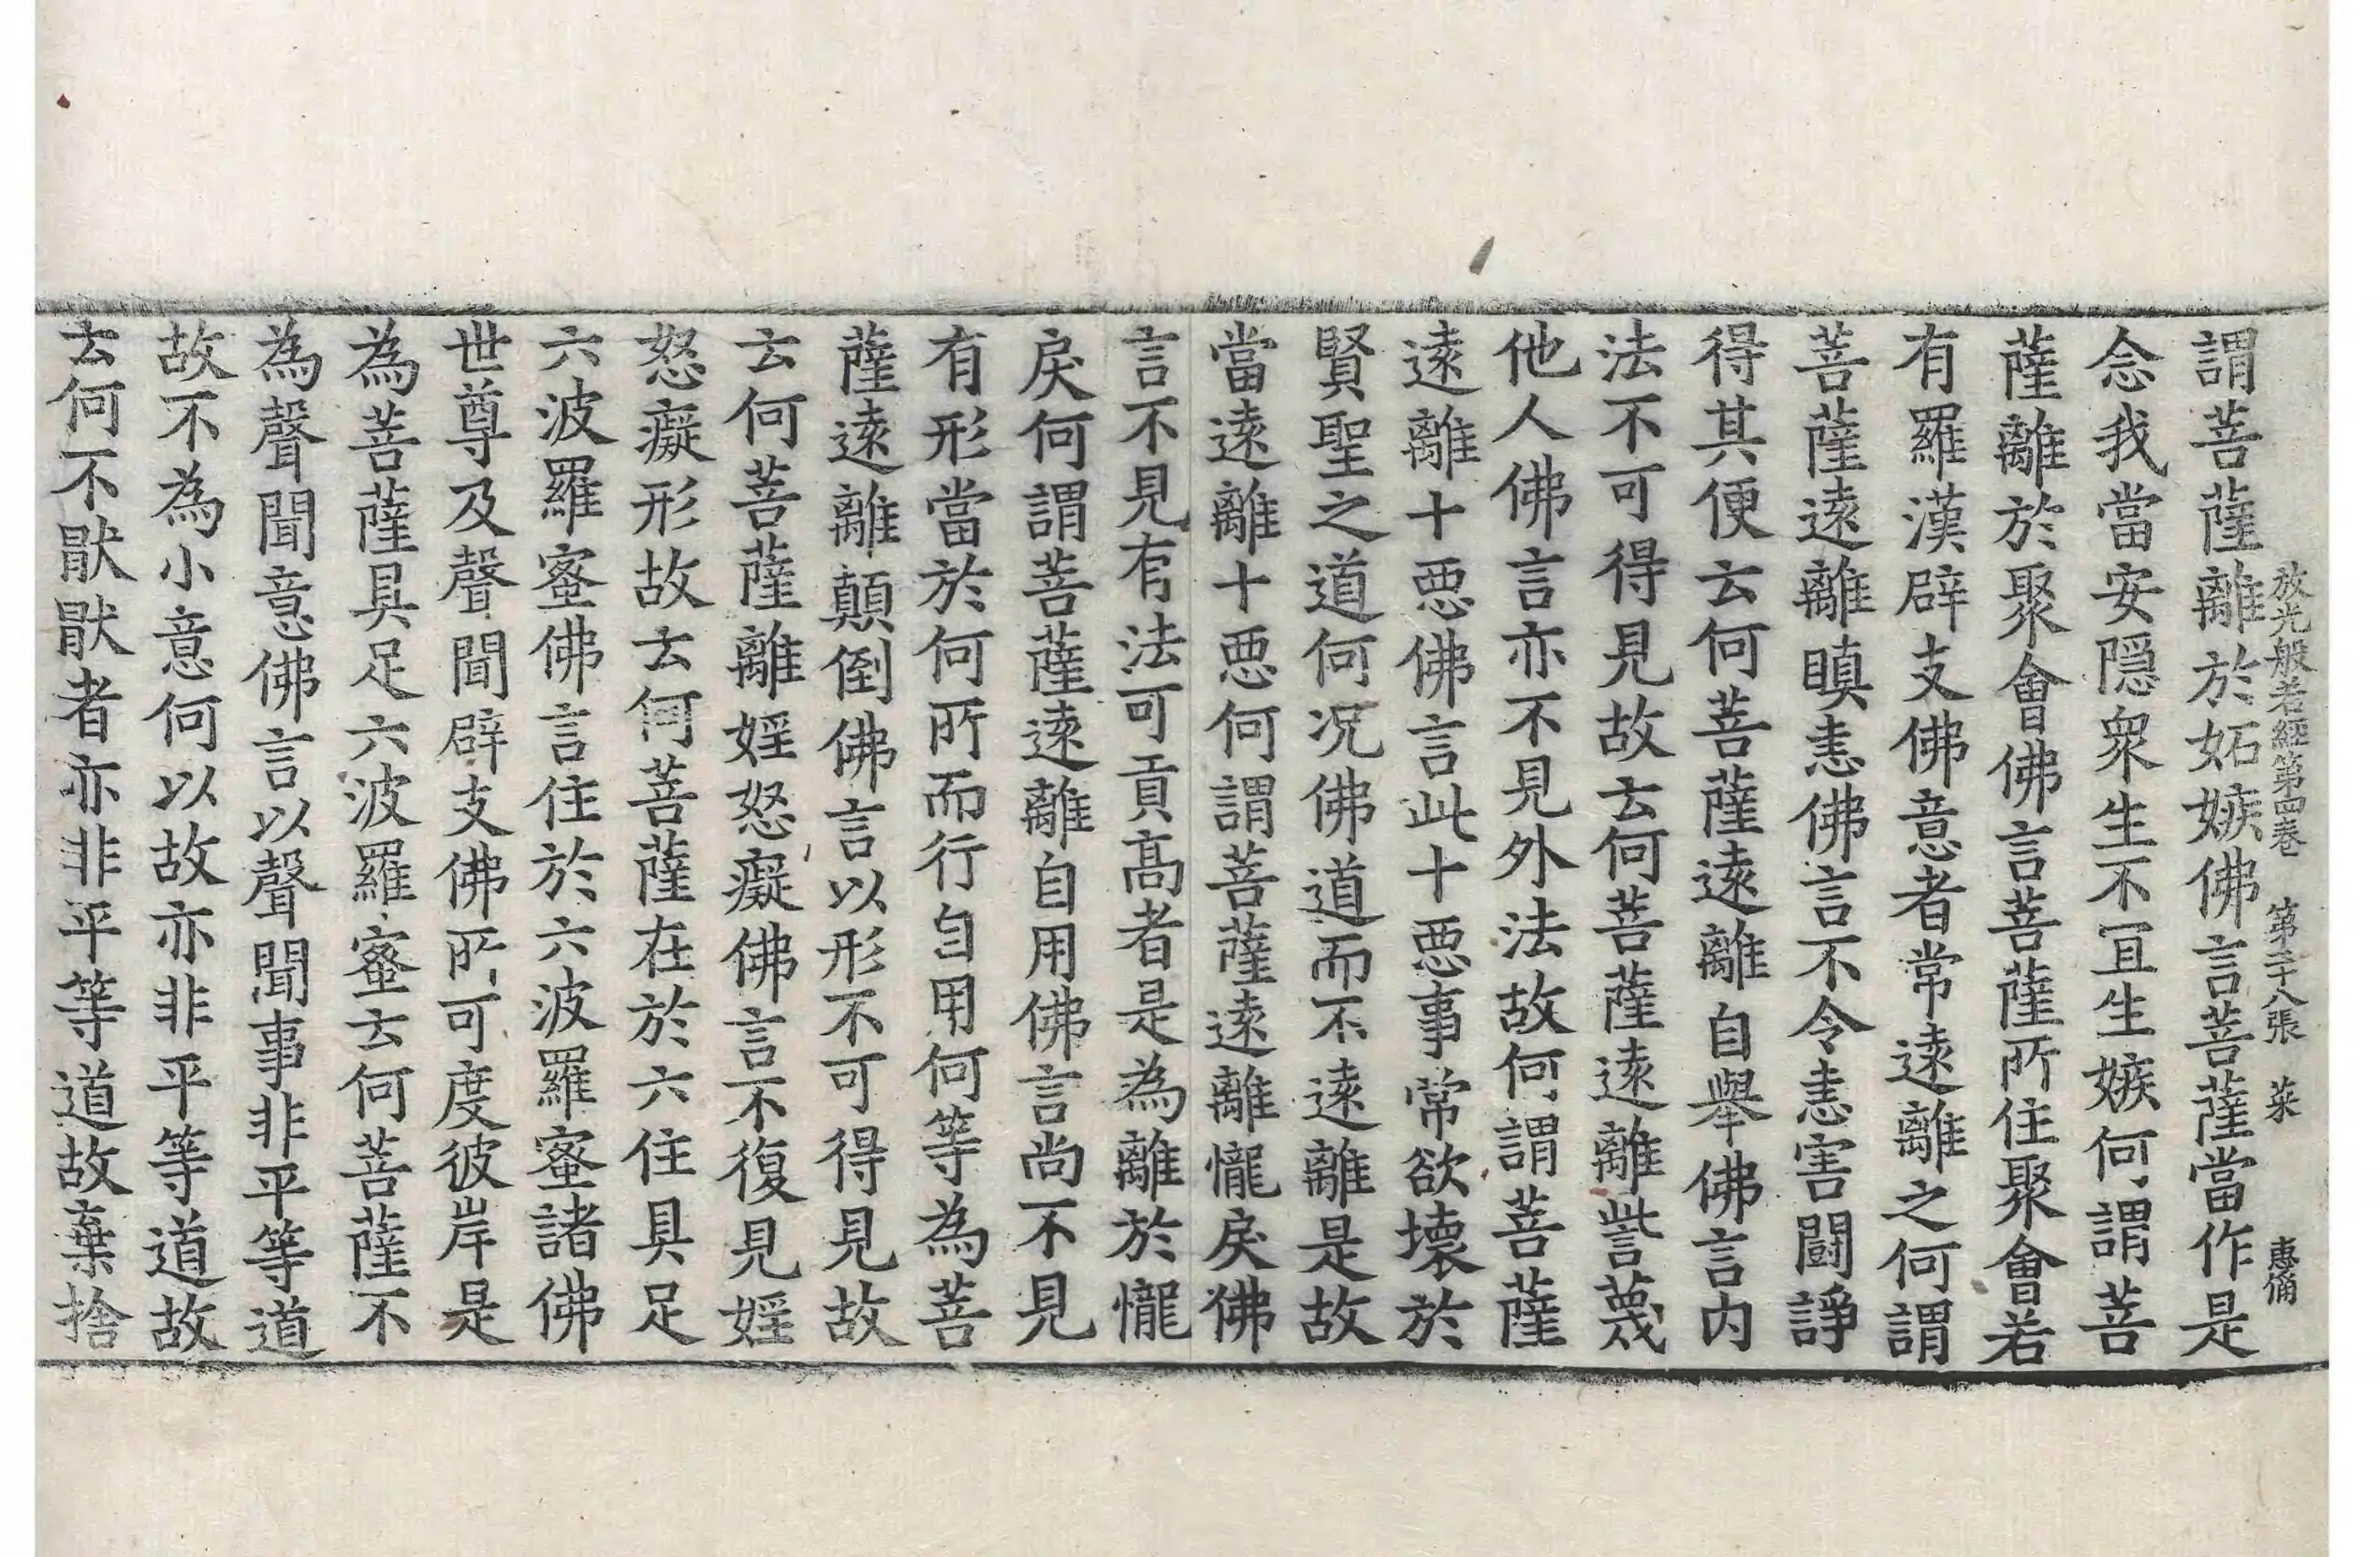 放光般若經第四卷　第二十八張　菜　惠脩
謂菩薩離於妬嫉佛言菩薩當作是
念我當安隱衆生不冝生嫉何謂菩
薩離於聚會佛言菩薩所住聚會若
有羅漢辟支佛意者常逺離之何謂
菩薩逺離瞋恚佛言不令恚害鬪諍
得其便云何菩薩逺離自舉佛言内
法不可得見故云何菩薩逺離訾蔑
他人佛言亦不見外法故何謂菩薩
逺離十惡佛言此十惡事常欲壞於
賢聖之道何况佛道而不逺離是故
當逺離十惡何謂菩薩逺離㦬戾佛
言不見有法可貢髙者是為離於㦬
戾何謂菩薩逺離自用佛言尚不見
有形當於何所而行自用何等為菩
薩逺離顛倒佛言以形不可得見故
云何菩薩離婬怒癡佛言不復見婬
怒癡形故云何菩薩在於六住具足
六波羅蜜佛言住於六波羅蜜諸佛
世尊及聲聞辟支佛所可度彼岸是
為菩薩具足六波羅蜜云何菩薩不
為聲聞意佛言以聲聞事非平等道
故不為小意何以故亦非平等道故
云何不猒猒者亦非平等道故棄捨